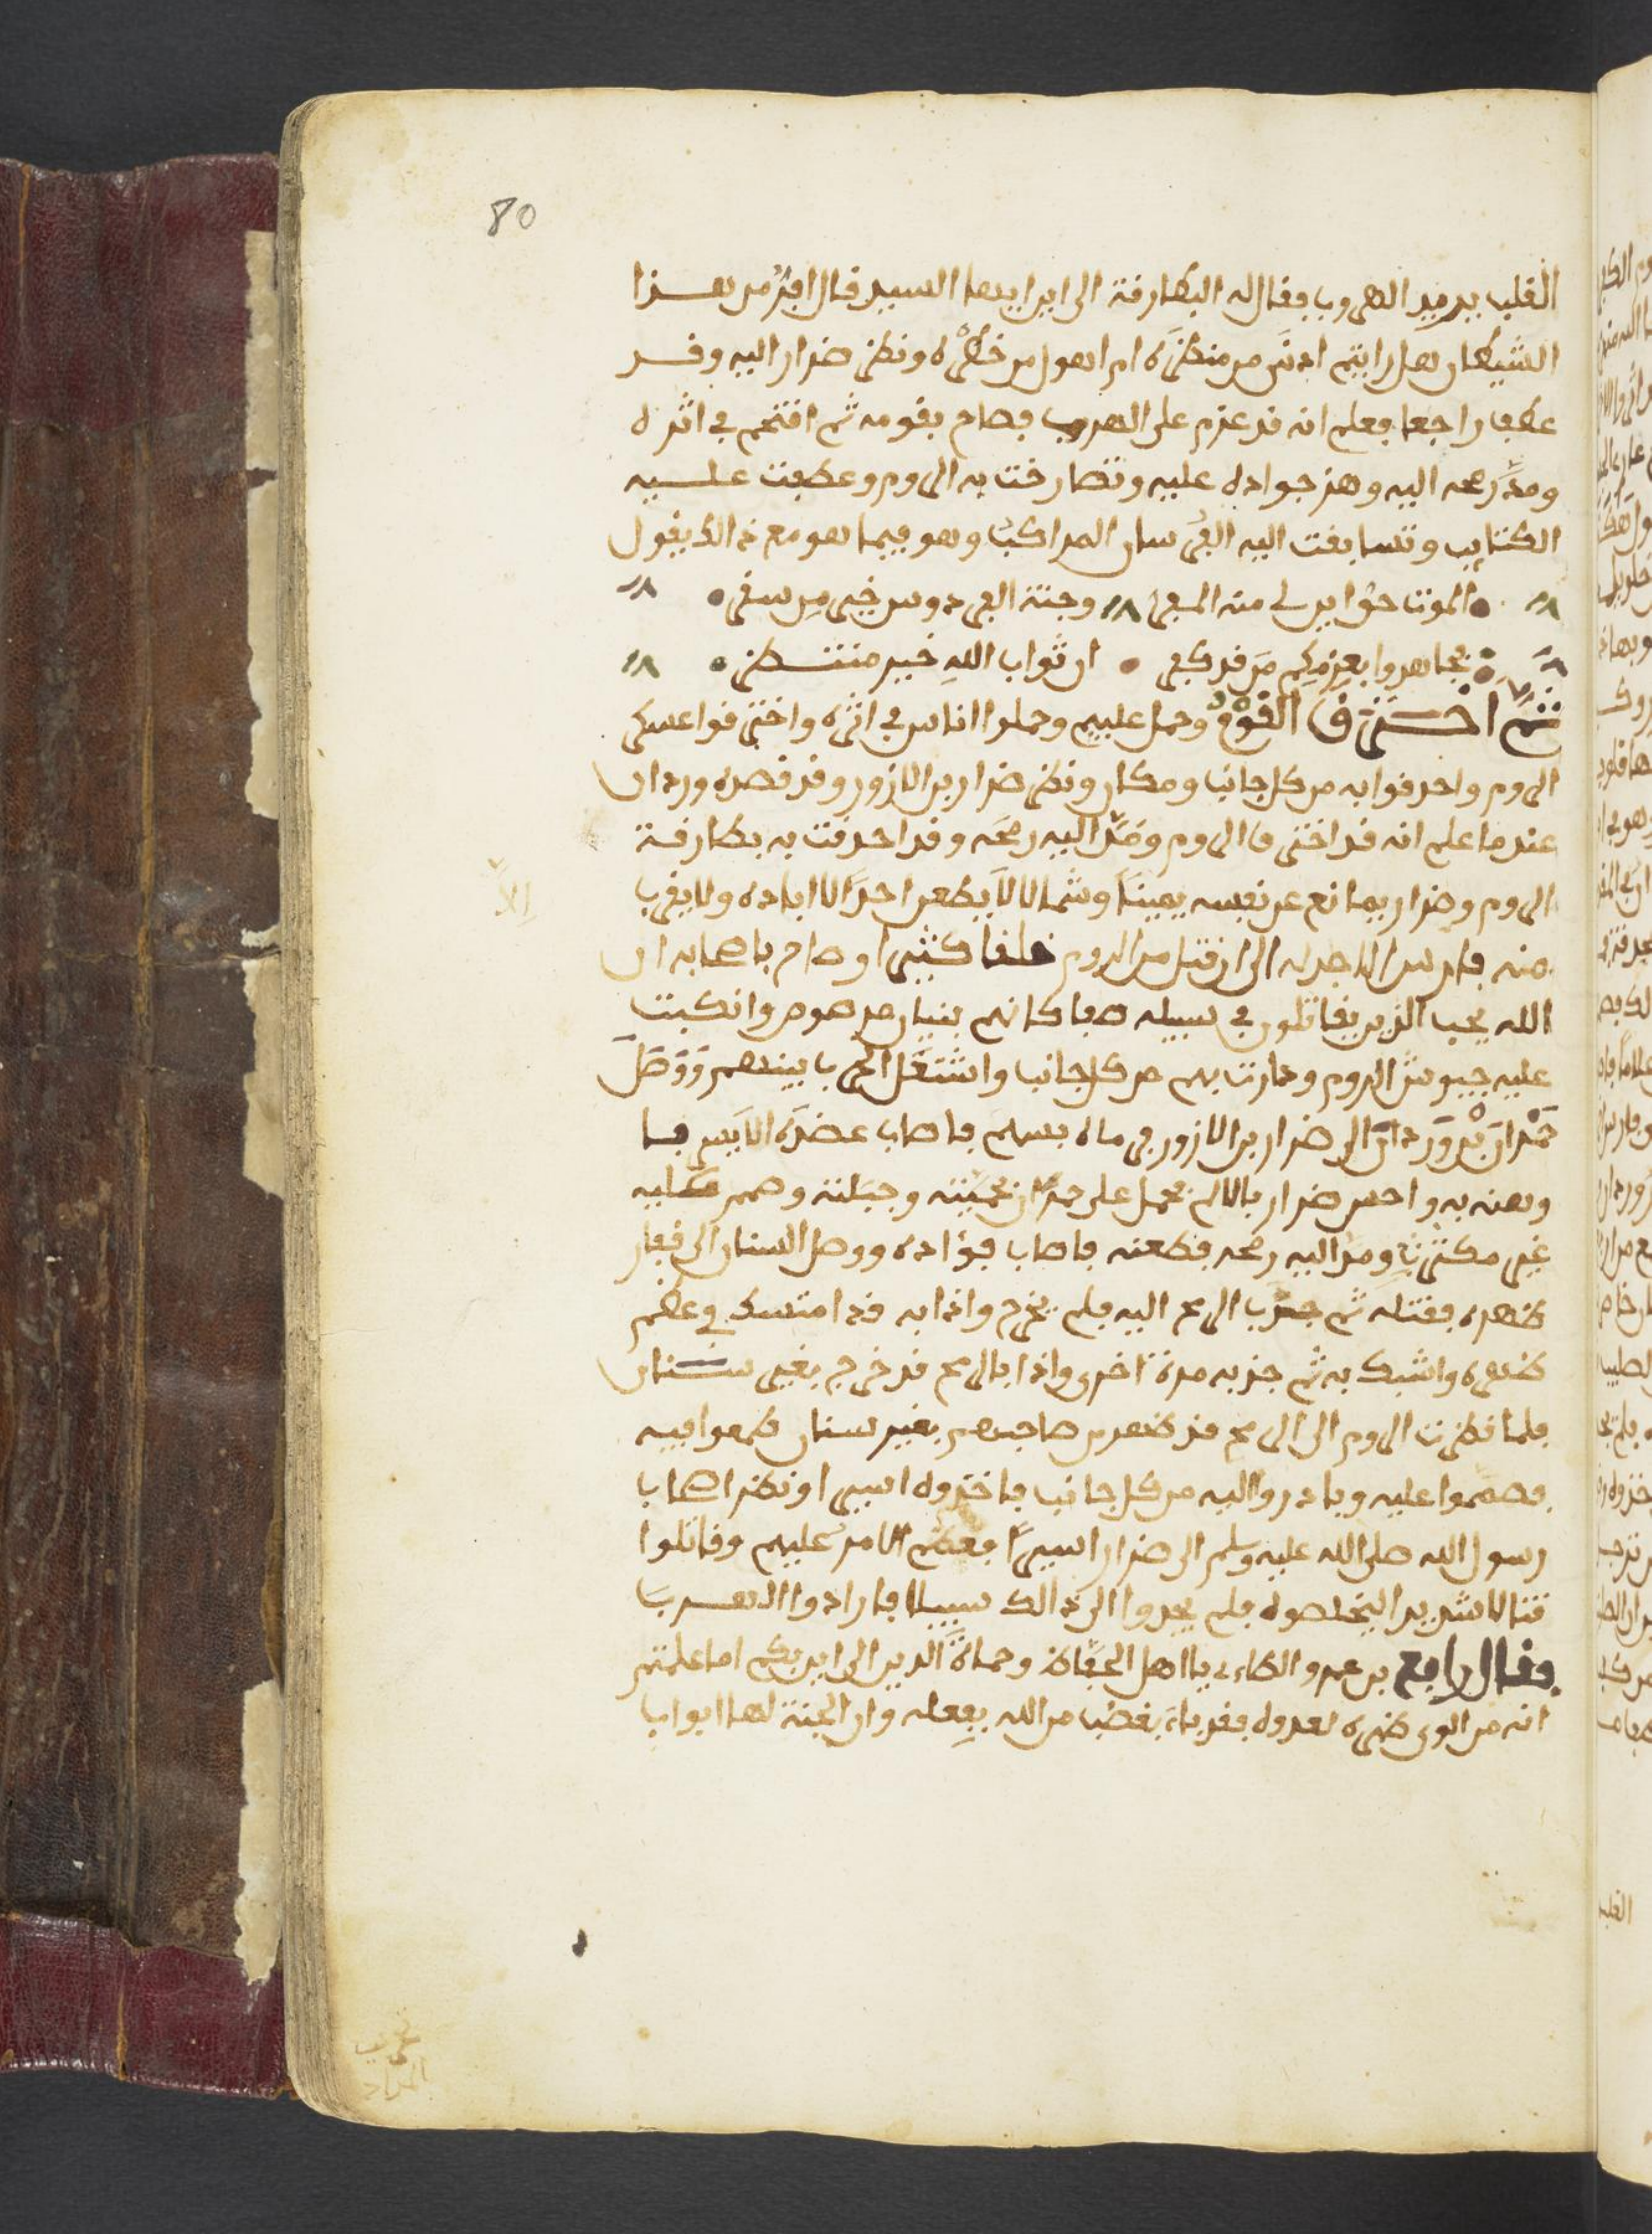 80
القلب يريد الهروب فقال له البطارقة الى اين ايها السيد قال افر من هذا
الشيطان هل رايتم ادنى من منظره ام اهول من خطره ونظر ضرار اليه وقد
عطف راجعا فعلم انه قد عزم على الهروب فصاح بقومه ثم اقتحم في اثره
ومد رمحه اليه وهز جواده عليه وتصارخت به الروم وعطفت عليه
الكتايب وتسابقت اليه الفرسان المراكب وهو فيما هو مع ذالك يقول
الموت حق اين لي منه المفر وجنة الفردوس خير من سقر
فجاهدوا بعزمكم من قد كفر ان ثواب الله خير منتظر
ثم اخترق القوم وحمل عليهم وحملوا الناس في اثره واخترقوا عسكر
الروم واحدقوا به من كل جانب ومكان ونظر ضرار بن الازور وقد قصده وردان
عندما علم انه قد اخترق الروم ومد اليه رمحه وقد احدقت به بطارقة
الروم وضرار يمانع عن نفسه يمينا وشمالا لا يطعن احدا الا اباده ولا يقرب
منه فارس الا جدله الى ان قتل من الروم خلقا كثيرا وصاح باصحابه ان
الله يحب الذين يقاتلون في سبيله صفا كانهم بنيان مرصوص وانكبت
عليه جيوش الروم ودارت بهم من كل جانب واشتعل الحرب بينهم ووصل
حمران بن وردان الى ضرار بن الازور فرماه بسهم فاصاب عضده الايسر فا
وهنه به واحس ضرار بالالم فحمل على حمران بحميته وجبلته وصمم عليه
غير مكترث ومد اليه رمحه فطعنه فاصاب فؤاده ووصل السنان الى فقار
ظهره فقتله ثم جذب الرمح اليه فلم يخرج واذا به قد امتسك في عظم
ظهره واشبك به ثم جذبه مرة اخرى واذا بالرمح قد خرج بغير سنان
فلما نظرت الروم الى الرمح قد ظهر من صاحبهم بغير سنان طمعوا فيه
فصمموا عليه وبادروا اليه من كل جانب فاخذوه اسيرا ونظر اصحاب
رسول الله صلى الله عليه وسلم الى ضرار اسيرا فعظم الامر عليهم وقاتلوا
قتالا شديدا ليخلصوه فلم يجدوا الى ذالك سبيلا فارادوا الهرب
وقال رافع بن عمرو الطاءي يا اهل الحفاظ وحماة الدين الى اين بكم اما علمتم
انه من الوى ظهره لعدوه فقد باء بغضب من الله بفعله وان الجنة لها ابواب